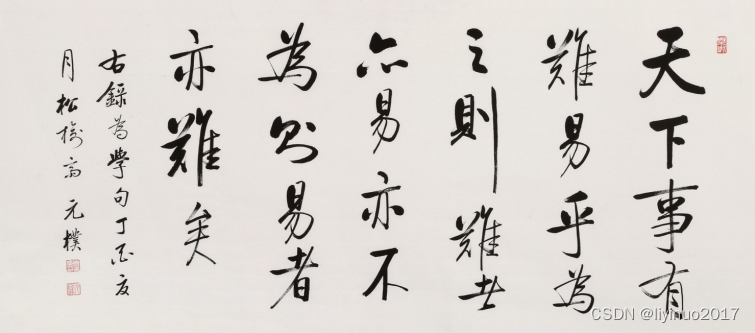 天下事有
難易乎為
之則難者
亦易亦不
為則易者
亦難矣
右錄為學句丁酉夏
月松 元樸
CSDN @liyinuo2017